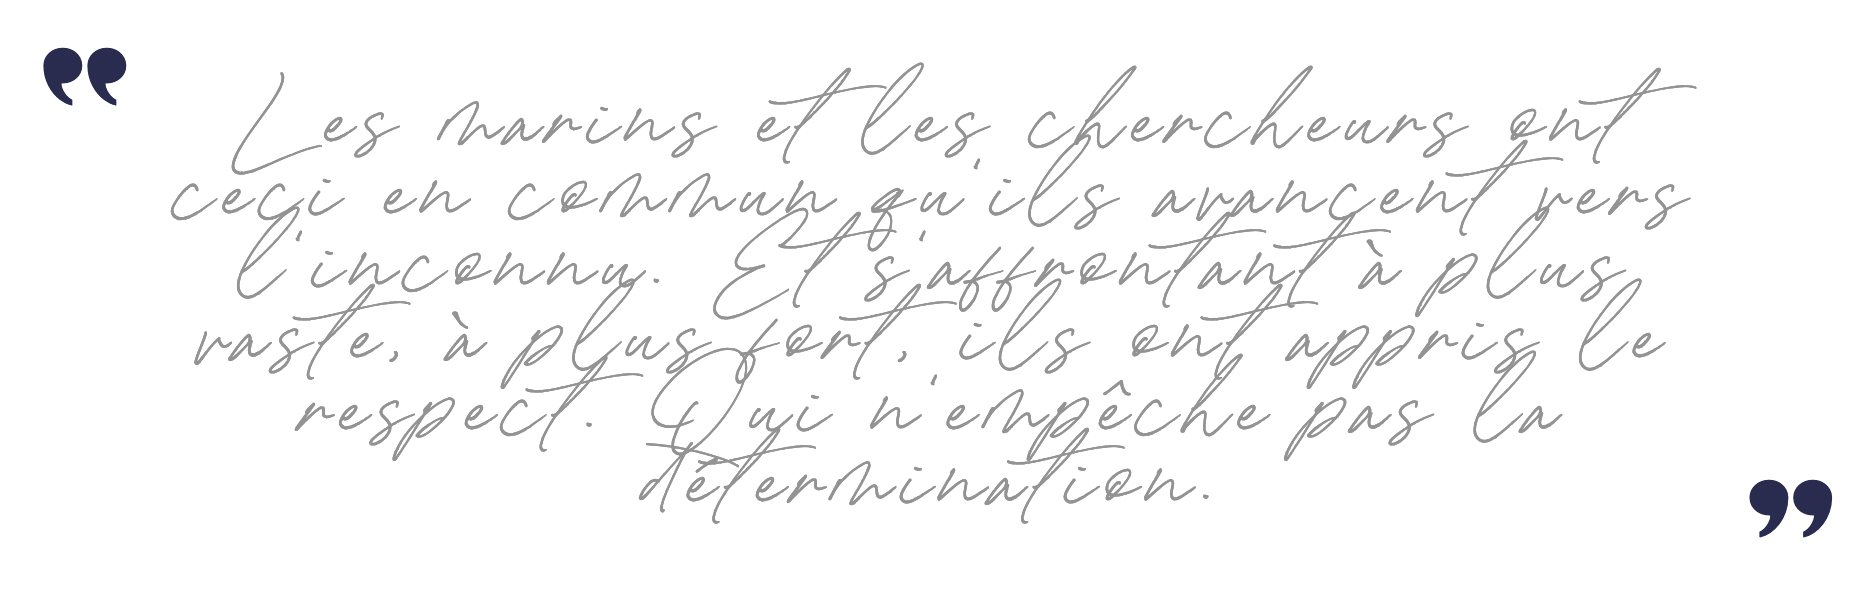 “ Les marins et les chercheurs ont
ceci en commun qu'ils avancent vers
l'inconnu. Et s'affrontant à plus
vaste, à plus fort, ils ont appris le
respect. Qui n'empêche pas la
détermination. ”